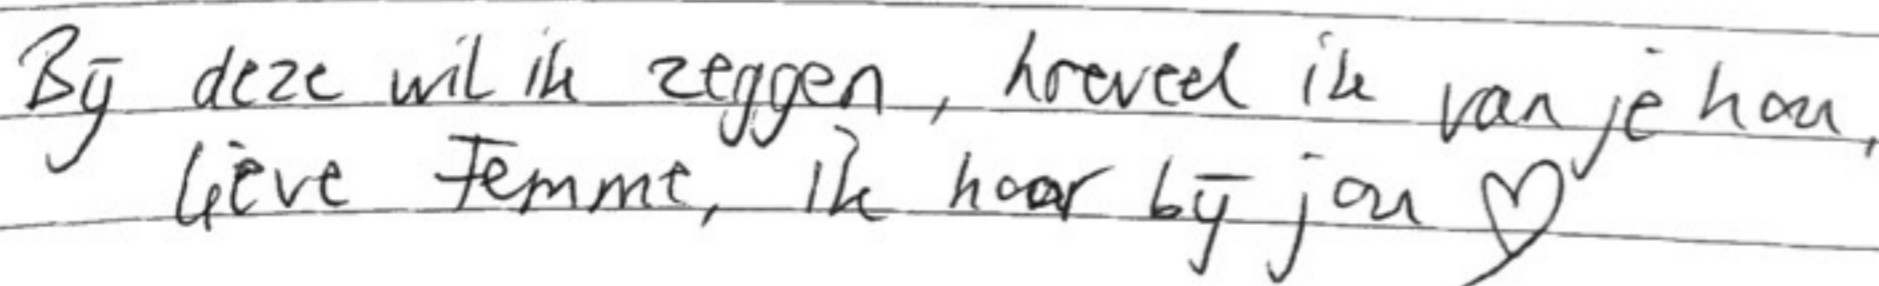 Bij deze wil ik zeggen, hoeveel ik van je hou,
lieve Femme, ik hoor bij jou ♡